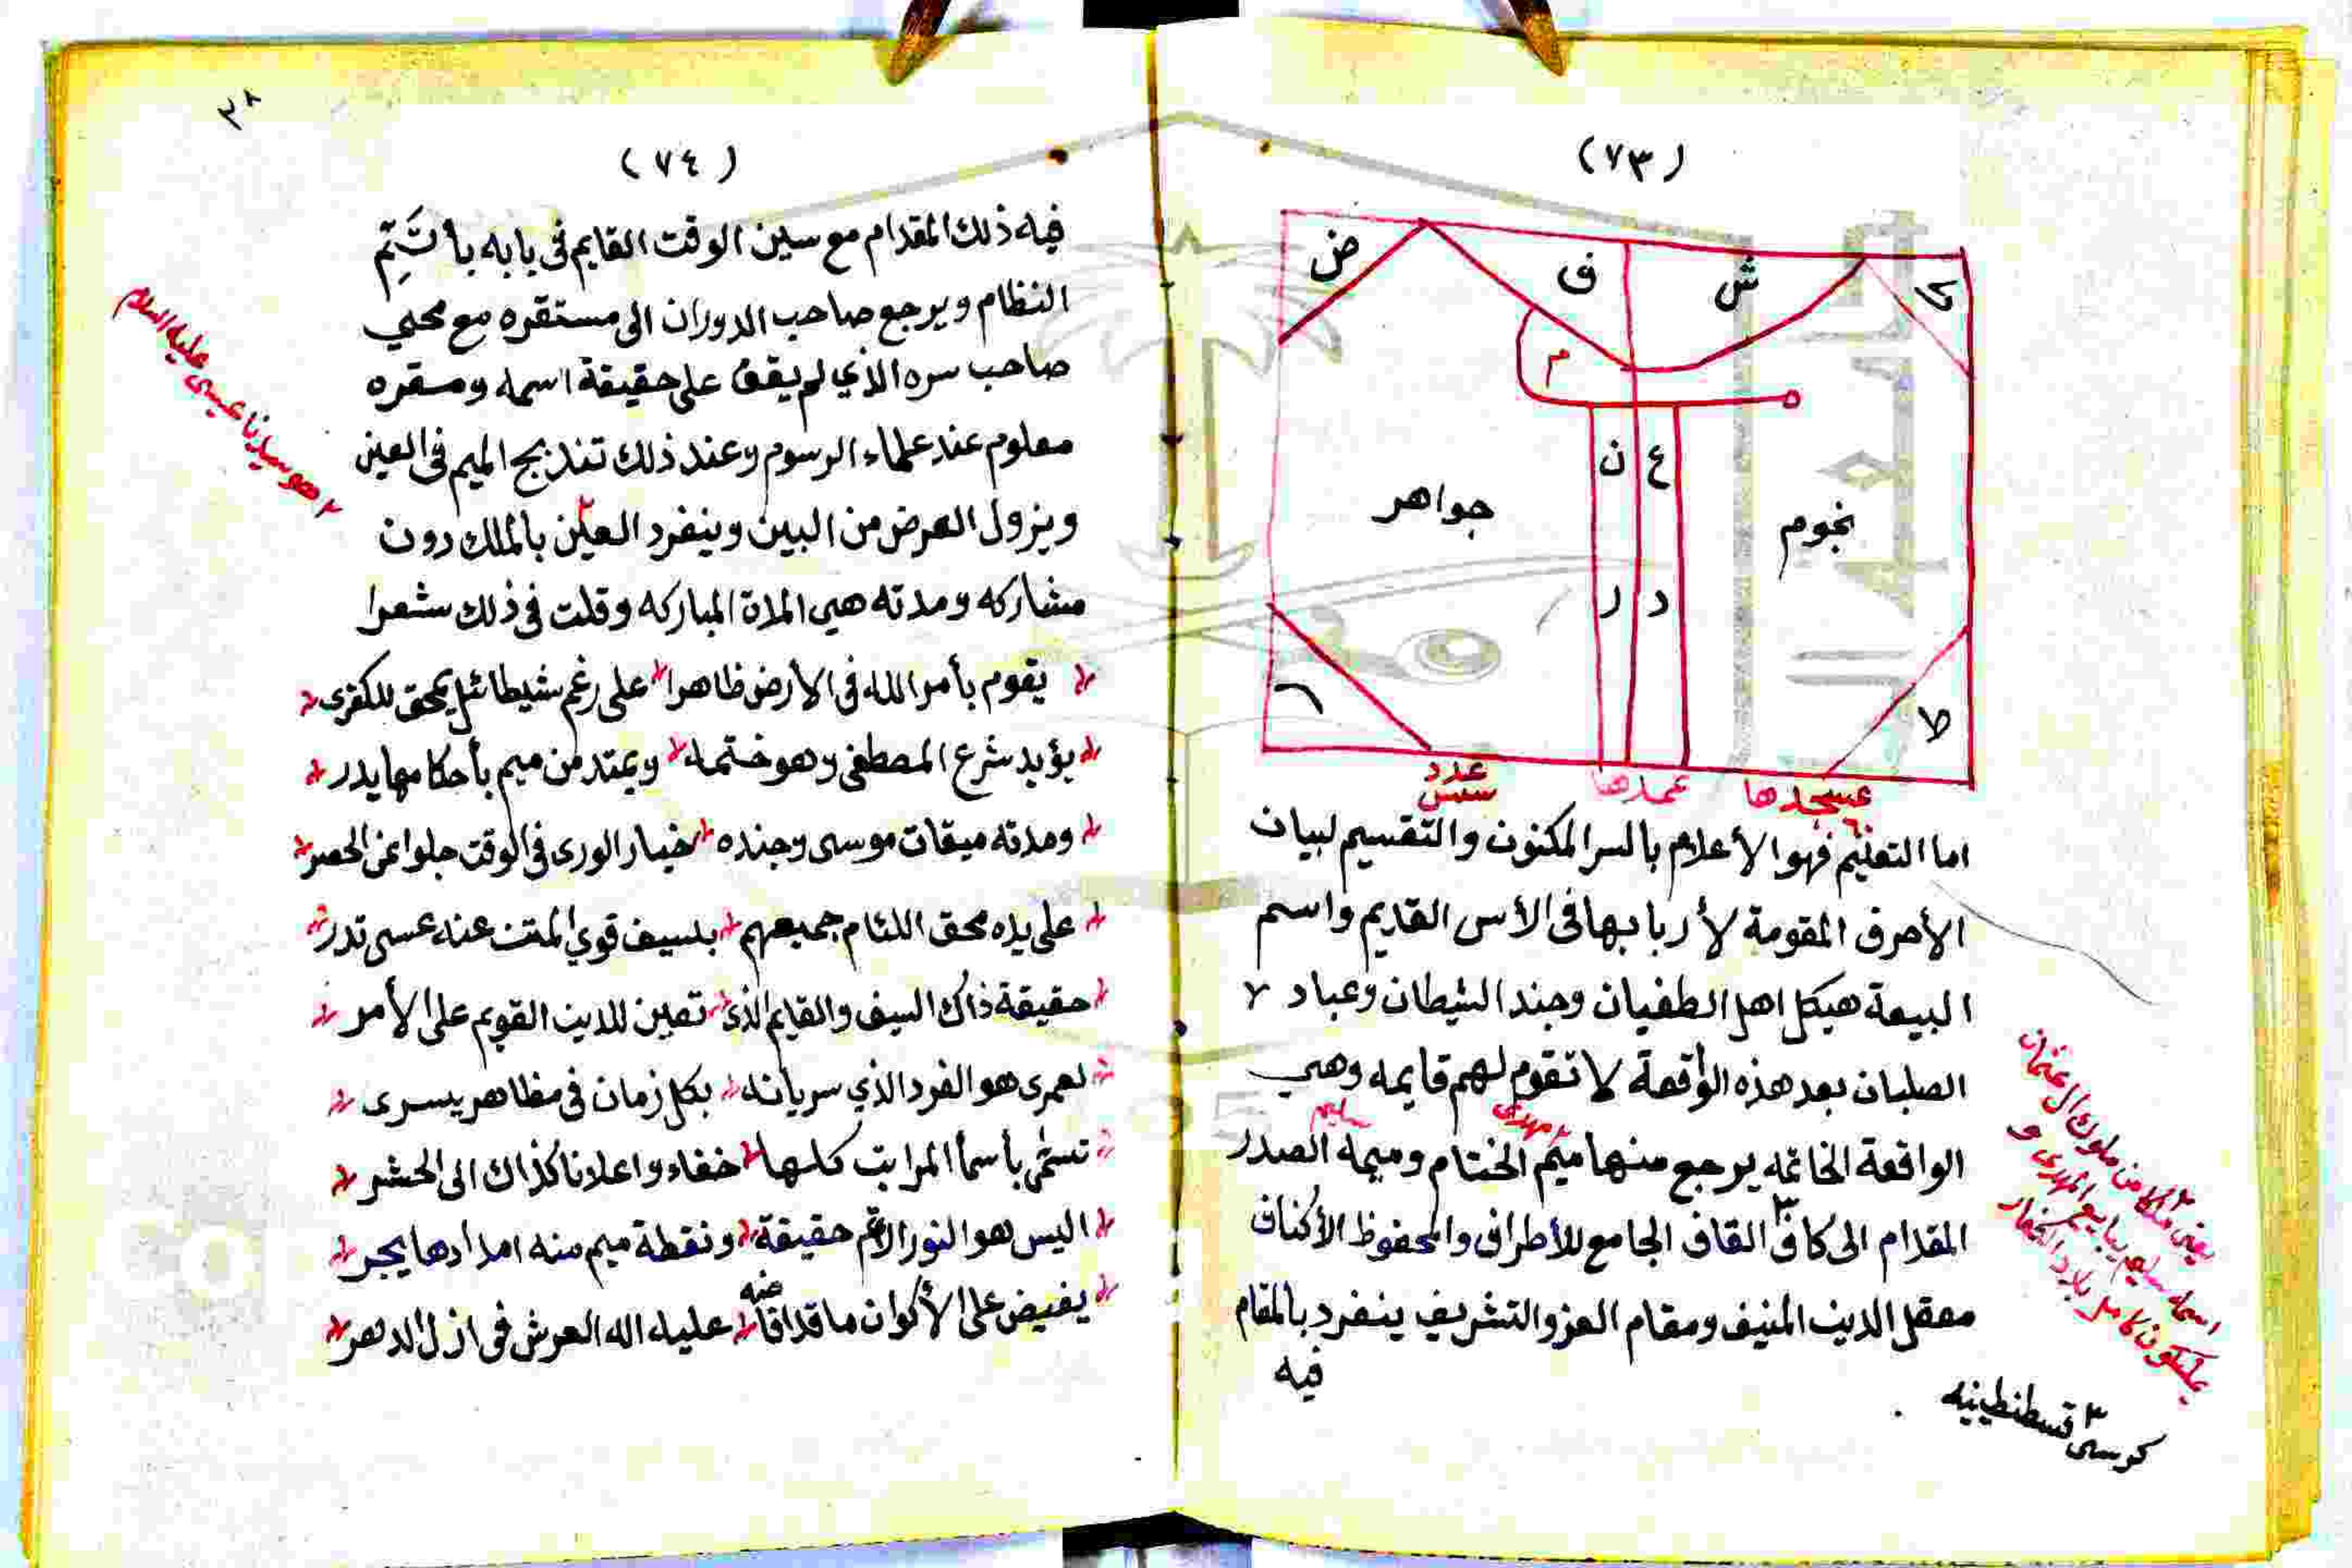 (٧٣)
ض ف ش ك
م ه
ن ع
جواهر نجوم
ر د
ط
عدد عمدها عسجدها
سس
اما التعليم فهوا الأعلام بالسر المكنون والتقسيم لبيان
الأحرف المقومة لأربابها فى الأس القديم واسم
البيعة هيكل اهل الطغيان وجند الشيطان وعباد ٢
الصلبان بعد هذه الواقعة لا تقوم لهم قايمه وهي
مهدى سليم
الواقعة الخاتمه يرجع منها ميم الختام وميمه الصدر
المقدام الى كاف٣ القاف الجامع للأطراف والمحفوظ الأكناف
معقل الدين المنيف ومقام العز والتشريف ينفرد بالمقام
فيه
يعنى ملكا من ملوك ال عثمان
اسمه سليم يبايع المهدى و
يملكون كامل بلاد الكفار
٣ قسطنطينيه
كرسي
٣٨
(٧٤)
فيه ذلك المقدام مع سين الوقت القايم فى بابه بأ تَتِمّ
النظام ويرجع صاحب الدوران الى مستقره مع محيي
صاحب سره الذي لم يقف على حقيقة اسمه ومقره
معلوم عند علماء الرسوم وعند ذلك تندبج الميم فى العين
ويزول العرض من البين وينفرد العين٢ بالملك دون
مشاركه ومدته هي المدة المباركه وقلت فى ذلك شعرا
يقوم بأمر الله فى الأرض ظاهرا على رغم شيطائيل يمحق للكفرى
يؤيد شرع المصطفى وهو ختمه ويمتد من ميم بأحكامها يدر
ومدته ميقات موسى وجنده خيار الورى فى الوقت جلوا عن الحصر
على يده محق اللئام جميعهم بسيف قوي المتن عنه عسى تدر
حقيقة ذاك السيف والقايم الذى تعين للدين القويم على الأمر
لعمرى هو الفرد الذي سريانه بكل زمان فى مظاهر يسرى
تسمى بأسما المراتب كلها خفاء واعلانا كذاك الى الحشر
اليس هو النور الأتم حقيقة ونقطة ميم منه امدادها يجر
يفيض على الأكوان ما قد افاضه عليه اله العرش فى ازل الدهر
٢ هو سيدنا عيسى عليه السلام